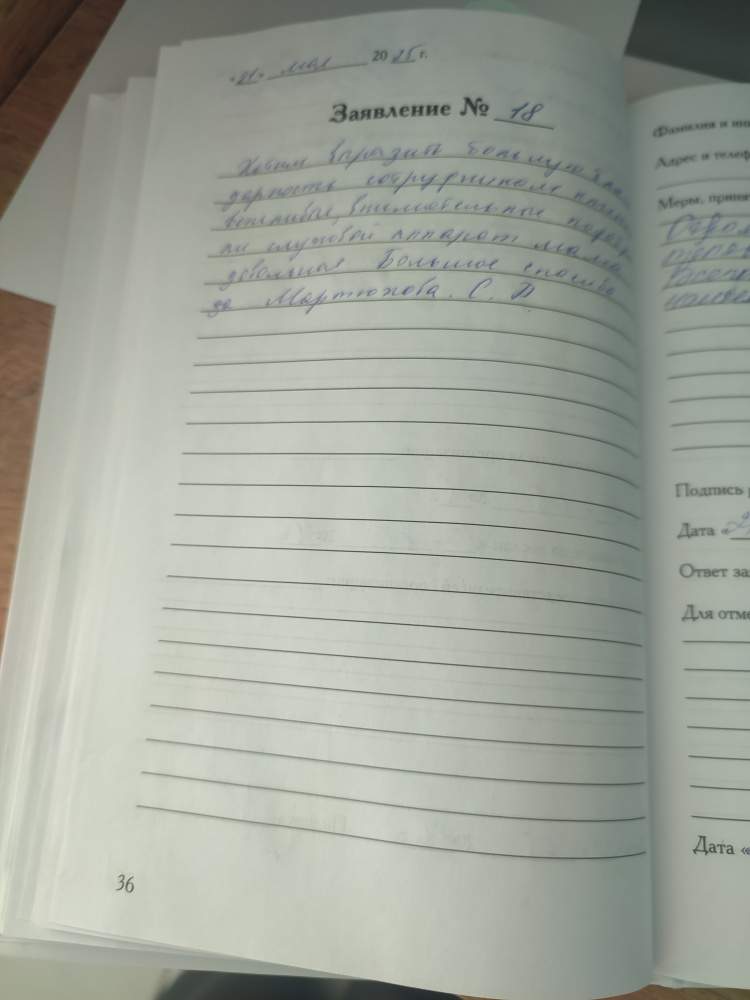 «21» мая 2025 г.
Заявление № 18
Хотим выразить большую бла
дарность сотрудникам
вежливые, внимательные подобр
ли слуховой аппарат мама
довольная Большое спасибо
да Мартюхова. С. В
36
Фамилия и ини
Адрес и телеф
Меры, приня
Подпись р
Дата «
Ответ за
Для отме
Дата «